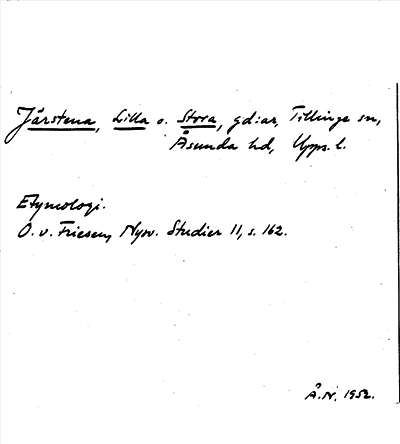 Järstena, Lilla o. Stora, gd:ar, Tillinge sn,
Åsunda hd, Upps. l.
Etymologi.
O. v. Friesen, Nysv. Studier 11, s. 162.
Å.N. 1952.